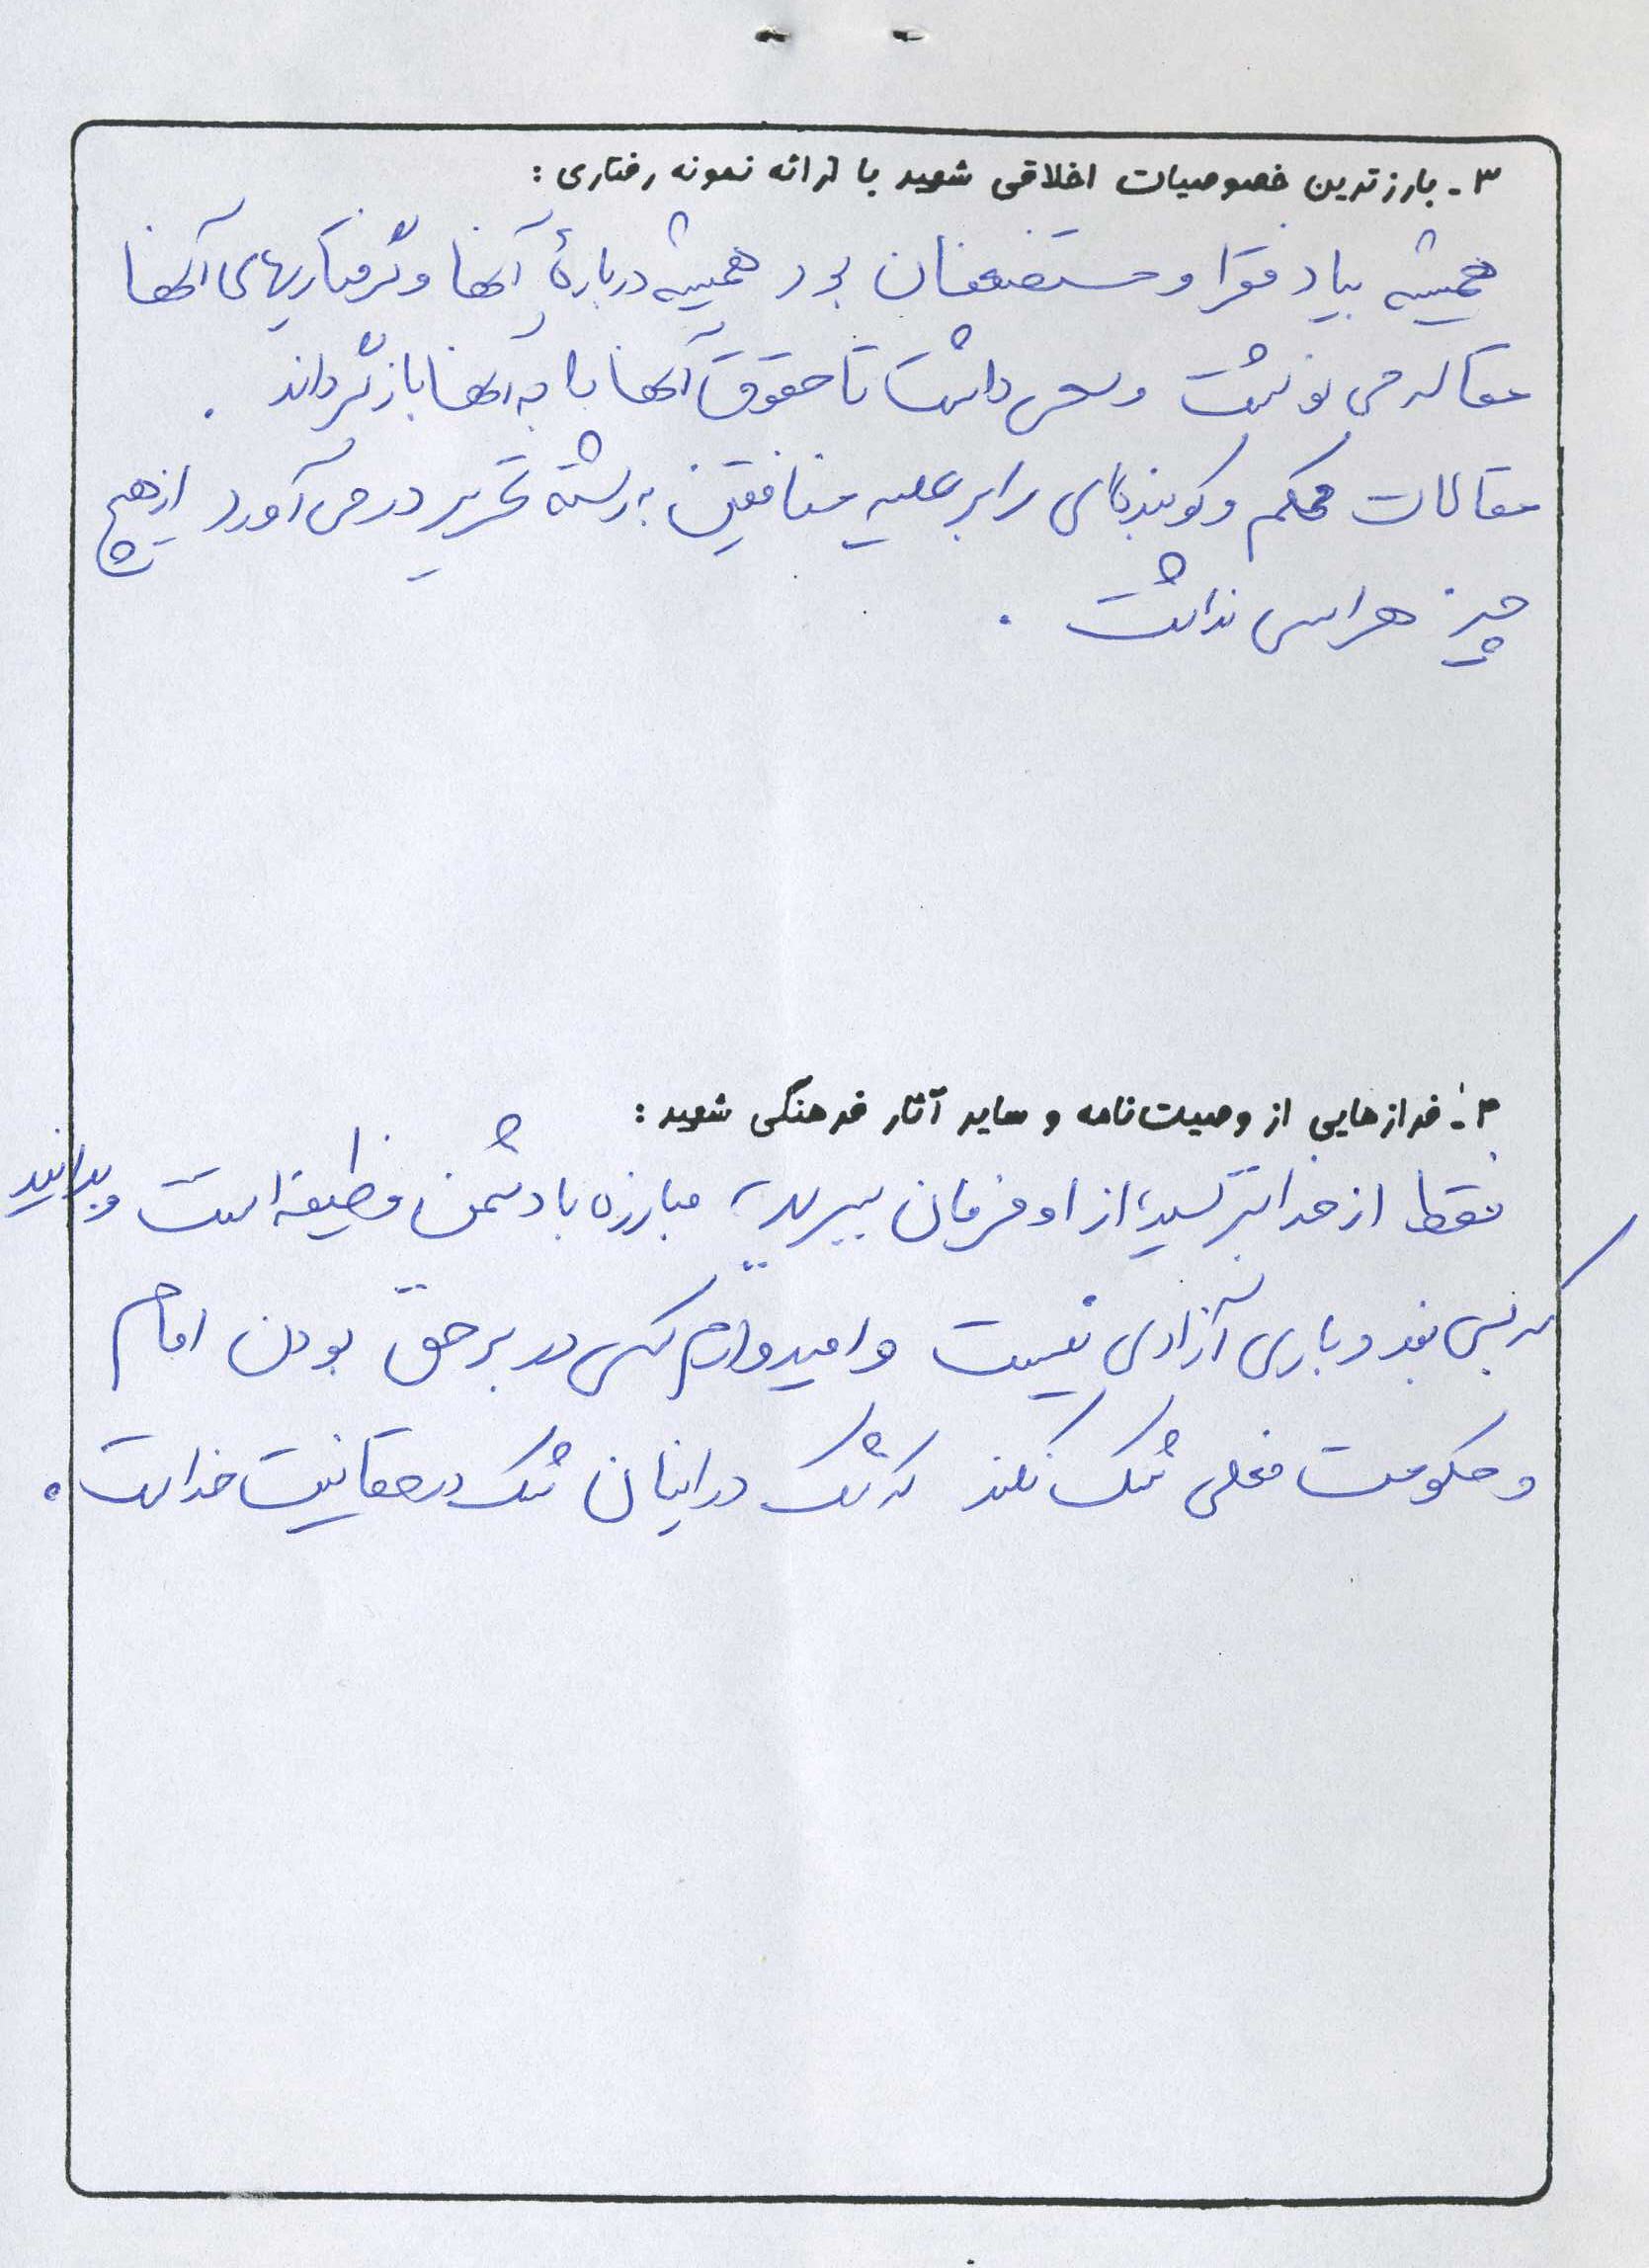 ۳- بارزترین خصوصیات اخلاقی شهید با ارائه نمونه رفتاری:
همیشه بیاد فقرا و مستضعفان بود همیشه دربارهٔ آنها و گرفتاریهای آنها
مقاله می نوشت و سعی داشت تا حقوق آنها را به آنها بازگرداند .
مقالات محکم و کوبنده‌ای را بر علیه منافقین به رشته تحریر در می آورد از هیچ
چیز هراس نداشت .
۴- فرازهایی از وصیت‌نامه و سایر آثار فرهنگی شهید:
فقط از خدا بترسید، از او فرمان ببرید، مبارزه با دشمن وظیفه است و بدانید
که بی بند و باری آزادی نیست و امیدوارم کسی در بر حق بودن امام
و حکومت فعلی شک نکند که شک در اینان شک در حقانیت خداست .